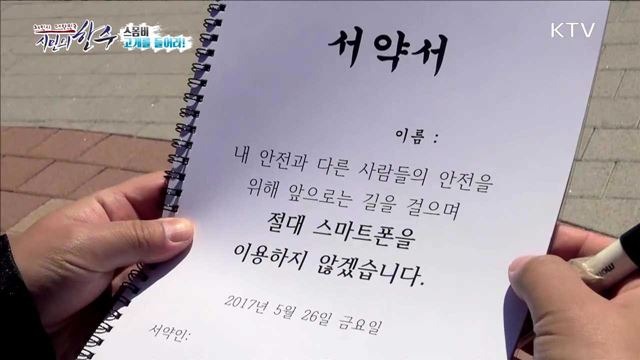 시민의 한 수
스몸비
고개를 들어라!
KTV
서약서
이름 :
내 안전과 다른 사람들의 안전을
위해 앞으로는 길을 걸으며
절대 스마트폰을
이용하지 않겠습니다.
2017년 5월 26일 금요일
서약인: